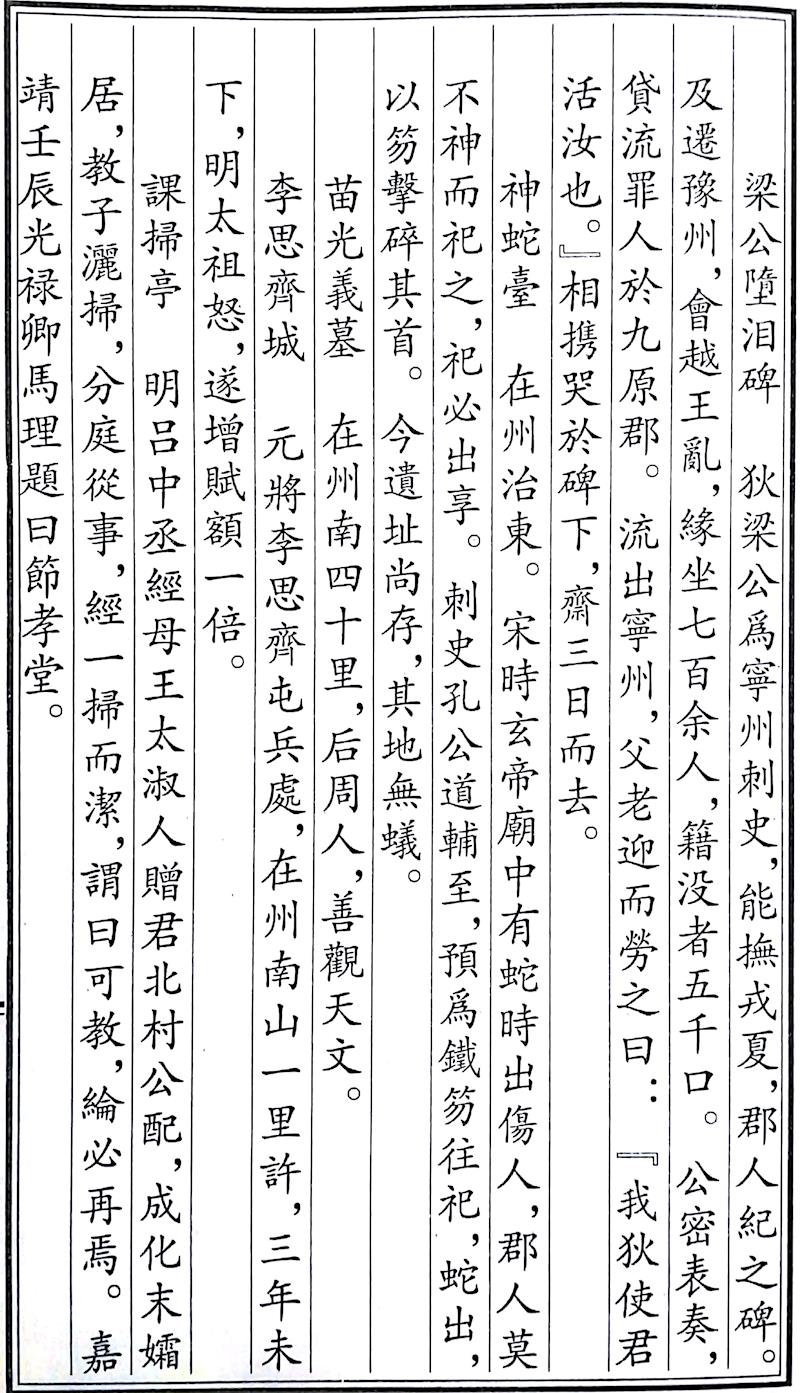 梁公墮泪碑　狄梁公爲寧州刺史，能撫戎夏，郡人紀之碑。
及遷豫州，會越王亂，緣坐七百余人，籍没者五千口。公密表奏，
貸流罪人於九原郡。流出寧州，父老迎而勞之曰：『我狄使君
活汝也。』相携哭於碑下，齋三日而去。
神蛇臺　在州治東。宋時玄帝廟中有蛇時出傷人，郡人莫
不神而祀之，祀必出享。刺史孔公道輔至，預爲鐵笏往祀，蛇出，
以笏擊碎其首。今遺址尚存，其地無蟻。
苗光義墓　在州南四十里，后周人，善觀天文。
李思齊城　元將李思齊屯兵處，在州南山一里許，三年未
下，明太祖怒，遂增賦額一倍。
課掃亭　明吕中丞經母王太淑人贈君北村公配，成化末孀
居，教子灑掃，分庭從事，經一掃而潔，謂曰可教，綸必再焉。嘉
靖壬辰光禄卿馬理題曰節孝堂。